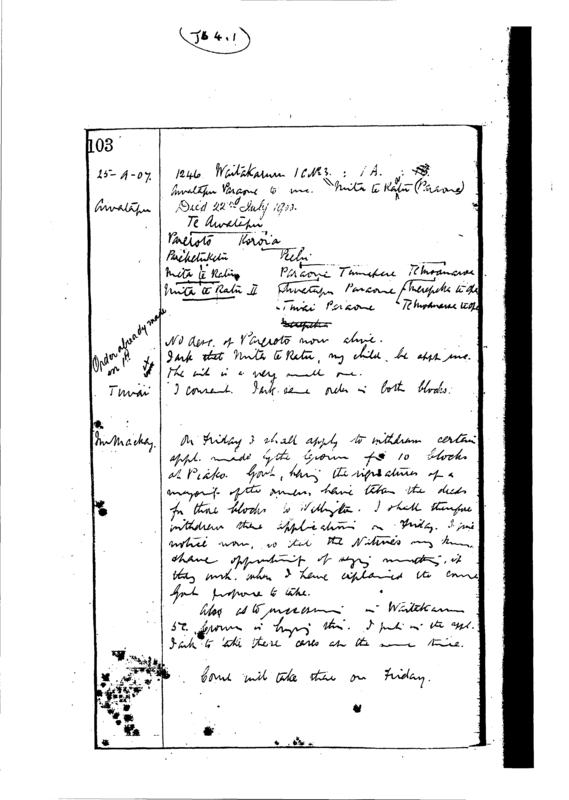 Jb 4.1
103
25-9-07. 1246 Waitakaruru 1 C No 3. : 1 A.
Awatapu Paraone to suc. Mita te Ratu (Paraone)
Awatapu Died 22nd July
Te Awatapu
Pareroto Koroia
Peketuketu Pehi
Mita te Ratu Paraone Tumekere
Mita te Ratu II Awatapu Paraone
Tiwai Paraone
Order already made
on 1A
No desc. of Pareroto now alive.
I ask that Mita te Ratu, my child, be appt suc.
The int is a very small one.
Tiwai I consent. I ask same order in both blocks.
Jm Mackay. On Friday I shall apply to withdraw certain
appl. made by the Crown for 10 blocks
at Piako. Govt, having the signatures of a
majority of the owners, have taken the deeds
for those blocks to Wellington. I shall therefore
withdraw these applications on Friday. I give
notice now, so that the Natives may know
& have opportunity of saying something, if
they wish, when I have explained the course
Govt propose to take.
Also as to succession in Waitakaruru
5C. Crown is buying this. I put in the appl.
I ask to take these cases at the same time.
Court will take these on Friday.